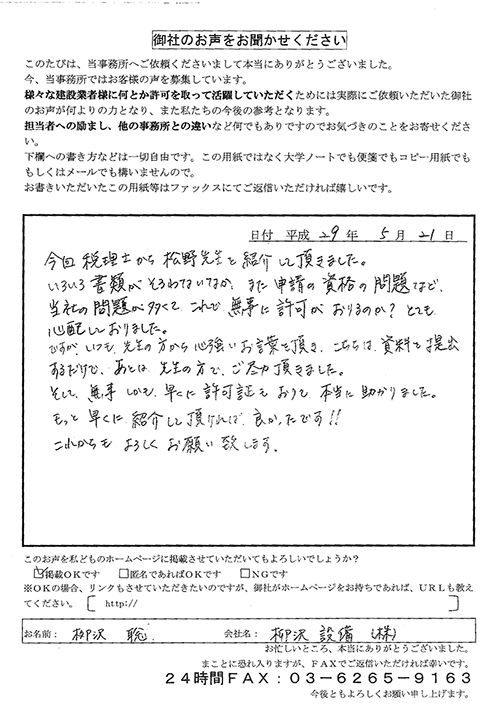 御社のお声をお聞かせください
このたびは、当事務所へご依頼くださいまして本当にありがとうございました。
今、当事務所ではお客様の声を募集しています。
様々な建設業者様に何とか許可を取って活躍していただくためには実際にご依頼いただいた御社
のお声が何よりの力となり、また私たちの今後の参考となります。
担当者への励まし、他の事務所との違いなど何でもありですのでお気づきのことをお寄せくださ
い。
下欄への書き方などは一切自由です。この用紙ではなく大学ノートでも便箋でもコピー用紙でも
もしくはメールでも構いませんので。
お書きいただいたこの用紙等はファックスにてご返信いただければ嬉しいです。
日付 平成 29 年 5 月 21 日
今回 税理士から 松野先生を 紹介して頂きました。
いろいろ 書類がそろわないなか、また申請の資格の問題など、
当社の問題が多くて、これで無事に許可がおりるのか？とても
心配しておりました。
ですが、いつも、先生の方から心強いお言葉を頂き、こちらは、資料を提出
するだけで、あとは、先生の方で、ご尽力頂きました。
そして、無事しかも、早くに許可証もおりて、本当に助かりました。
もっと早くに紹介して頂ければ、良かったです!!
これからも よろしくお願い致します。
このお声を私どものホームページに掲載させていただいてもよろしいでしょうか？
☑掲載ＯＫです □匿名であればＯＫです □ＮＧです
※ＯＫの場合、リンクもさせていただきたいのですが、御社がホームページをお持ちであれば、ＵＲＬも教え
てください。〔 http:// 〕
お名前： 柳沢 聡 会社名： 柳沢設備（株）
お忙しいところ、本当にありがとうございました。
まことに恐れ入りますが、ＦＡＸでご返信いただければ幸いです。
２４時間ＦＡＸ：０３－６２６５－９１６３
今後ともよろしくお願い申し上げます。